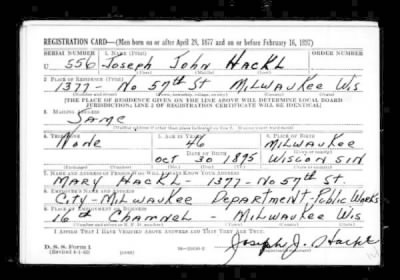 REGISTRATION CARD—(Men born on or after April 28, 1877 and on or before February 16, 1897)
SERIAL NUMBER 1. NAME (Print) ORDER NUMBER
U 556 Joseph John HACKL
(First) (Middle) (Last)
2. PLACE OF RESIDENCE (Print)
1377 - No 57th St MILWAUKEE WIS
(Number and street) (Town, township, village, or city) (County) (State)
[THE PLACE OF RESIDENCE GIVEN ON THE LINE ABOVE WILL DETERMINE LOCAL BOARD
JURISDICTION; LINE 2 OF REGISTRATION CERTIFICATE WILL BE IDENTICAL]
3. MAILING ADDRESS
SAME
[Mailing address if other than place indicated on line 2. If same insert word same]
4. TELEPHONE 5. AGE IN YEARS 6. PLACE OF BIRTH
None 46 MILWAUKEE
DATE OF BIRTH (Town or county)
OCT 30 1895 WISCONSIN
(Exchange) (Number) (Mo.) (Day) (Yr.) (State or country)
7. NAME AND ADDRESS OF PERSON WHO WILL ALWAYS KNOW YOUR ADDRESS
MARY HACKL - 1377 - No 57th ST.
8. EMPLOYER'S NAME AND ADDRESS
CITY - MILWAUKEE DEPARTMENT - Public Works
9. PLACE OF EMPLOYMENT OR BUSINESS
16th CHANNEL - MILWAUKEE WIS
(Number and street or R. F. D. number) (Town) (County) (State)
I AFFIRM THAT I HAVE VERIFIED ABOVE ANSWERS AND THAT THEY ARE TRUE.
D. S. S. Form 1
(Revised 4-1-42) (over)
Joseph J. Hackl